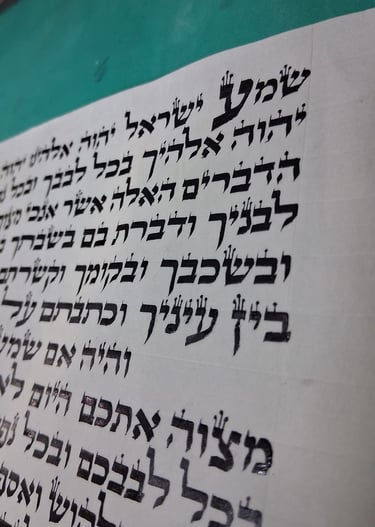 שמע ישראל יהוה אלהינו יהוה
יהוה אלהיך בכל לבבך ובכל
הדברים האלה אשר אנכי מצוך
לבניך ודברת בם בשבתך
ובשכבך ובקומך וקשרתם
בין עיניך וכתבתם על
והיה אם שמע
מצוה אתכם היום לא
בכל לבבכם ובכל
ואספת